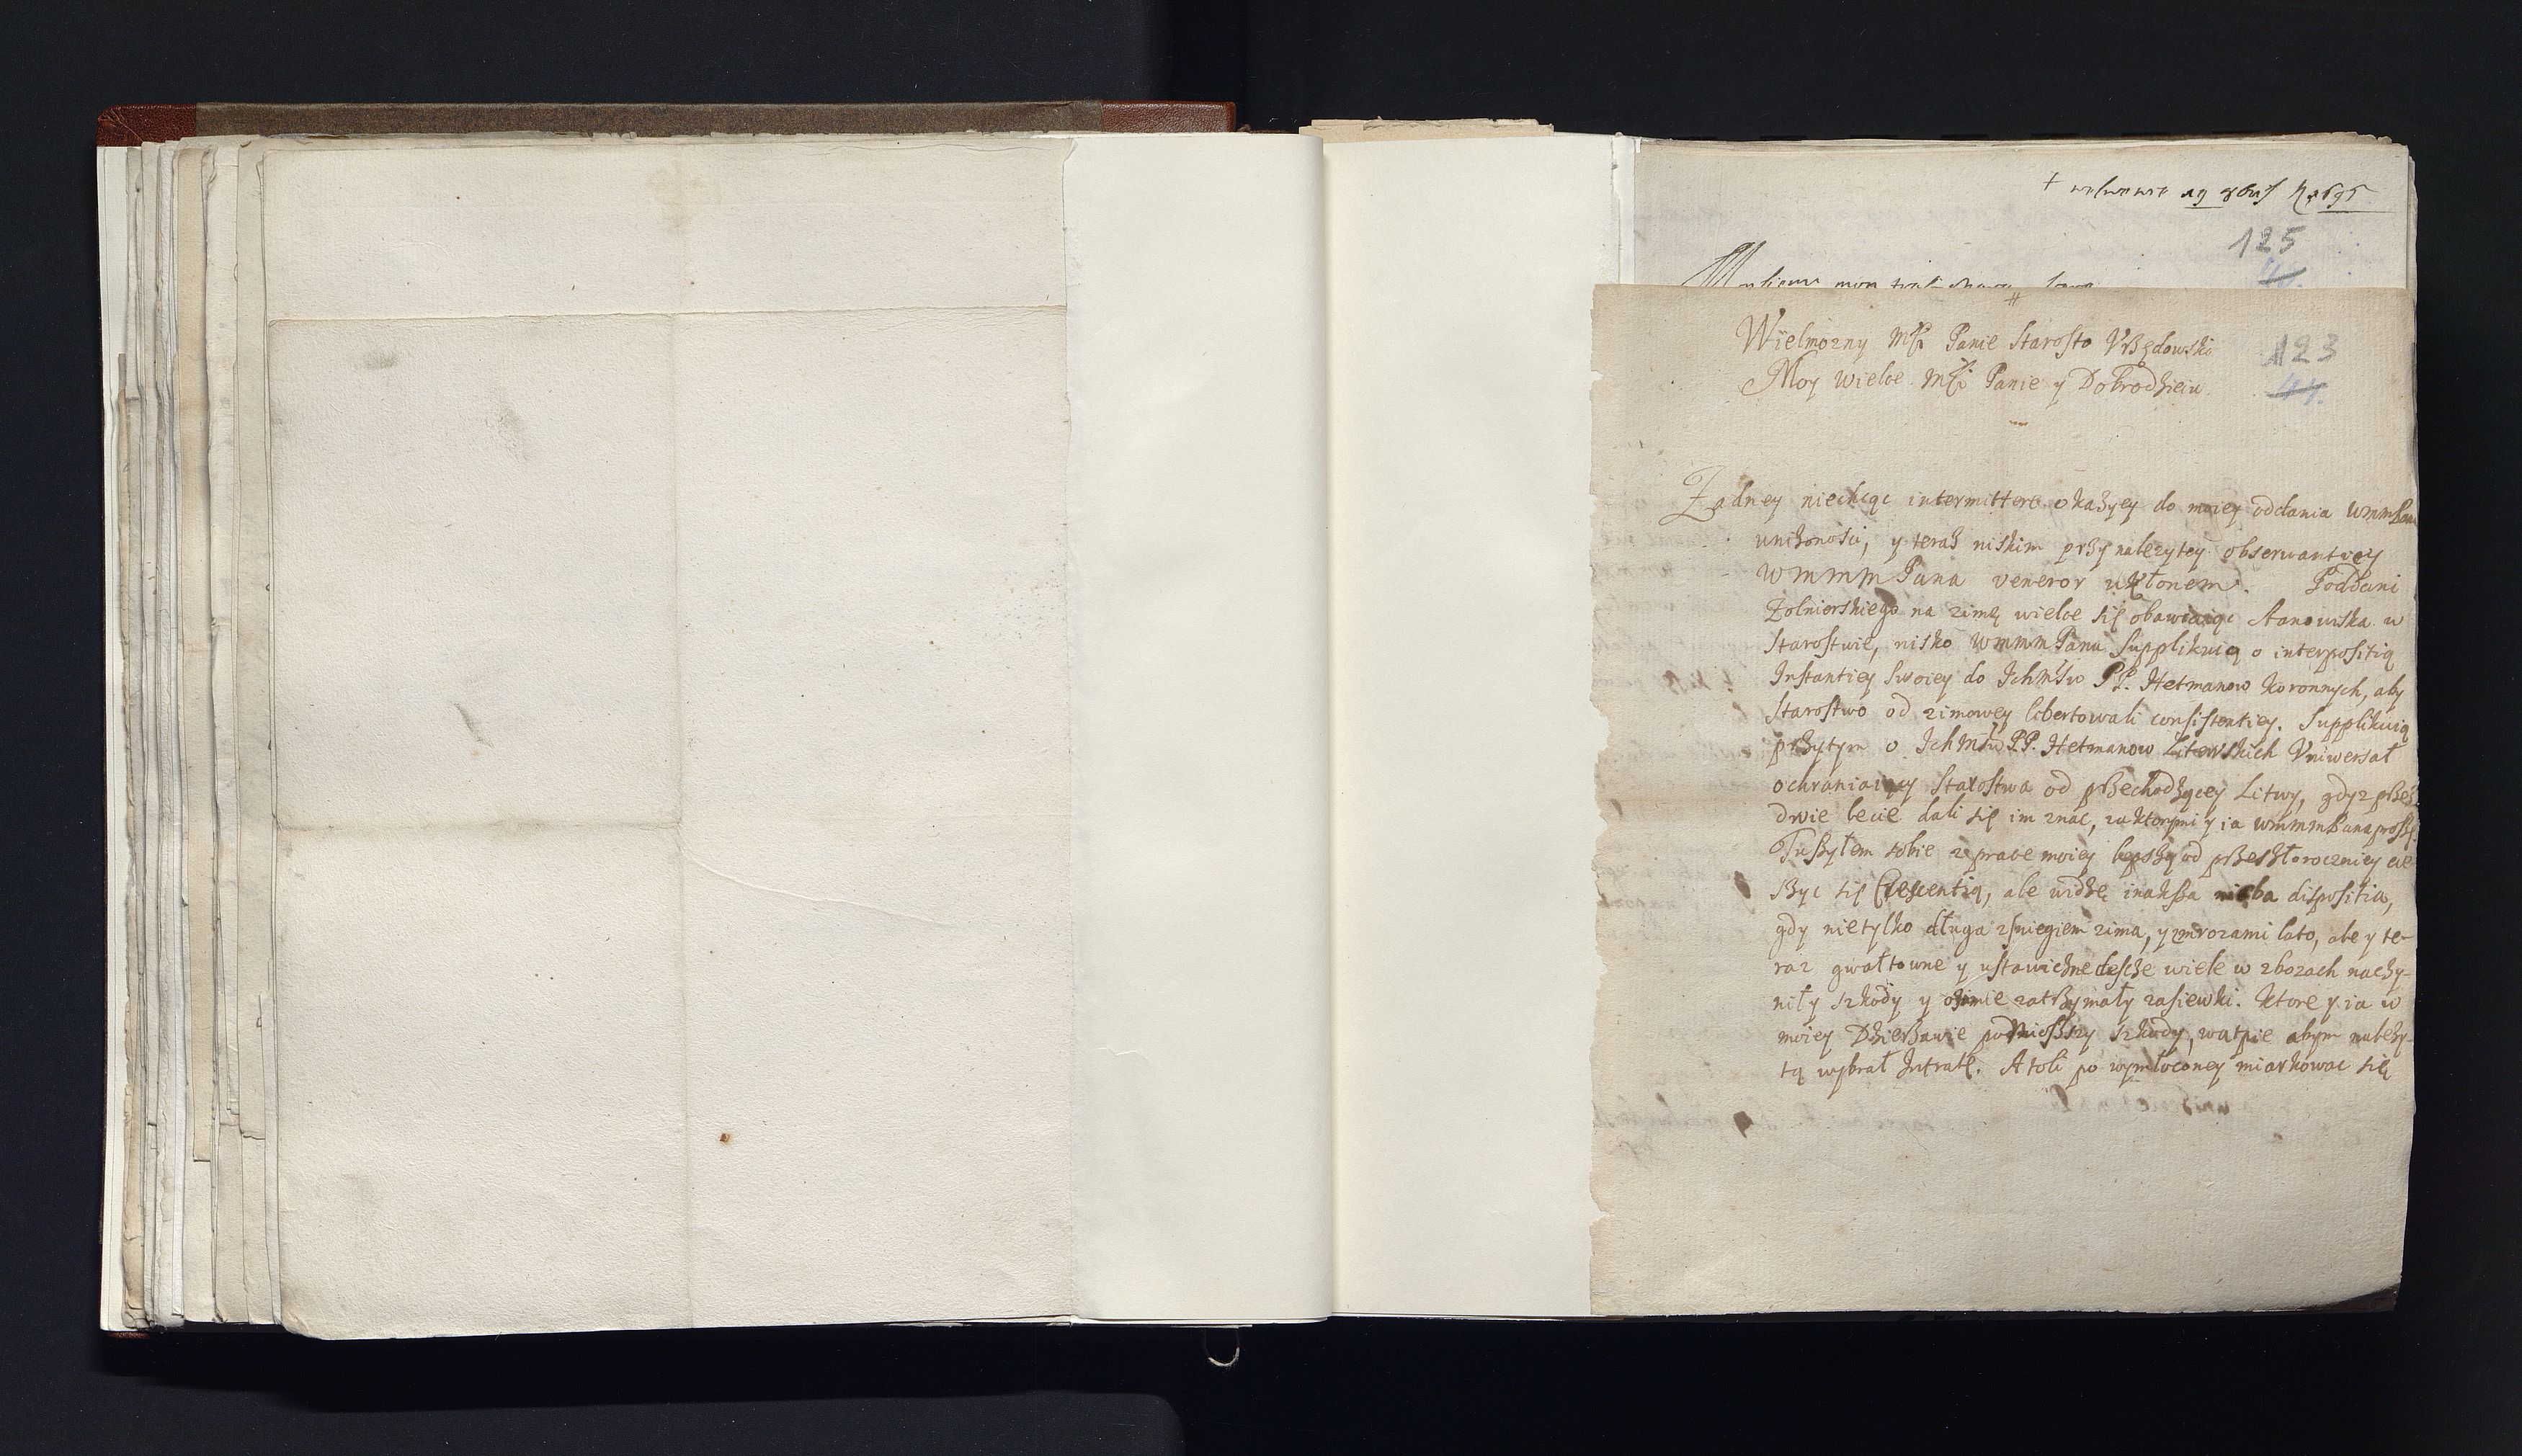 125
123
Wielmozny Mśći Panie Starosto Vrzędowski
Moy Wielce Mśći Panie y Dobrodzieiu
Zadney niechcąc intermittere okazyey do moiey oddania WmmPanu
unizonosci, y teraz niskim przynalezytey obserwantyey
WmmmPana veneror ukłonem. Poddani
Zołnierskiego na zimę wielce się obawiaiąc stanowiska w
Starostwie, nisko WmmmPanu Supplikuią o interpositią
Instantiey Swoiey do IchMśćiow PP. Hetmanow Koronnych, aby
Starostwo od zimowey libertowali consistentiey. Supplikuią
przytym o IchMśćiow PP. Hetmanow Litewskich Vniwersał
ochraniaiący Starostwa od przechodzącey Litwy, gdyz przez
dwie lecie dali się im znac, za ktorymi y ia WmmmPana proszę.
Tuszyłem sobie z prace moiey lepszą od przeszłoroczniey cie-
szyc się Crescentią, ale widzę inaksza nieba dispositia,
gdy nietylko długa z sniegiem zima, y z mrozami lato, ale y te-
raz gwałtowne y ustawiczne descze wiele w zbozach naczy-
niły szkody y ozimie zatrzymały zasiewki. Ktore y ia w
moiey Dzierzawie podniosszy szkody, watpie abym nalezy-
tą wybrał Intratę. Atoli po wymłoconey miarkowac się